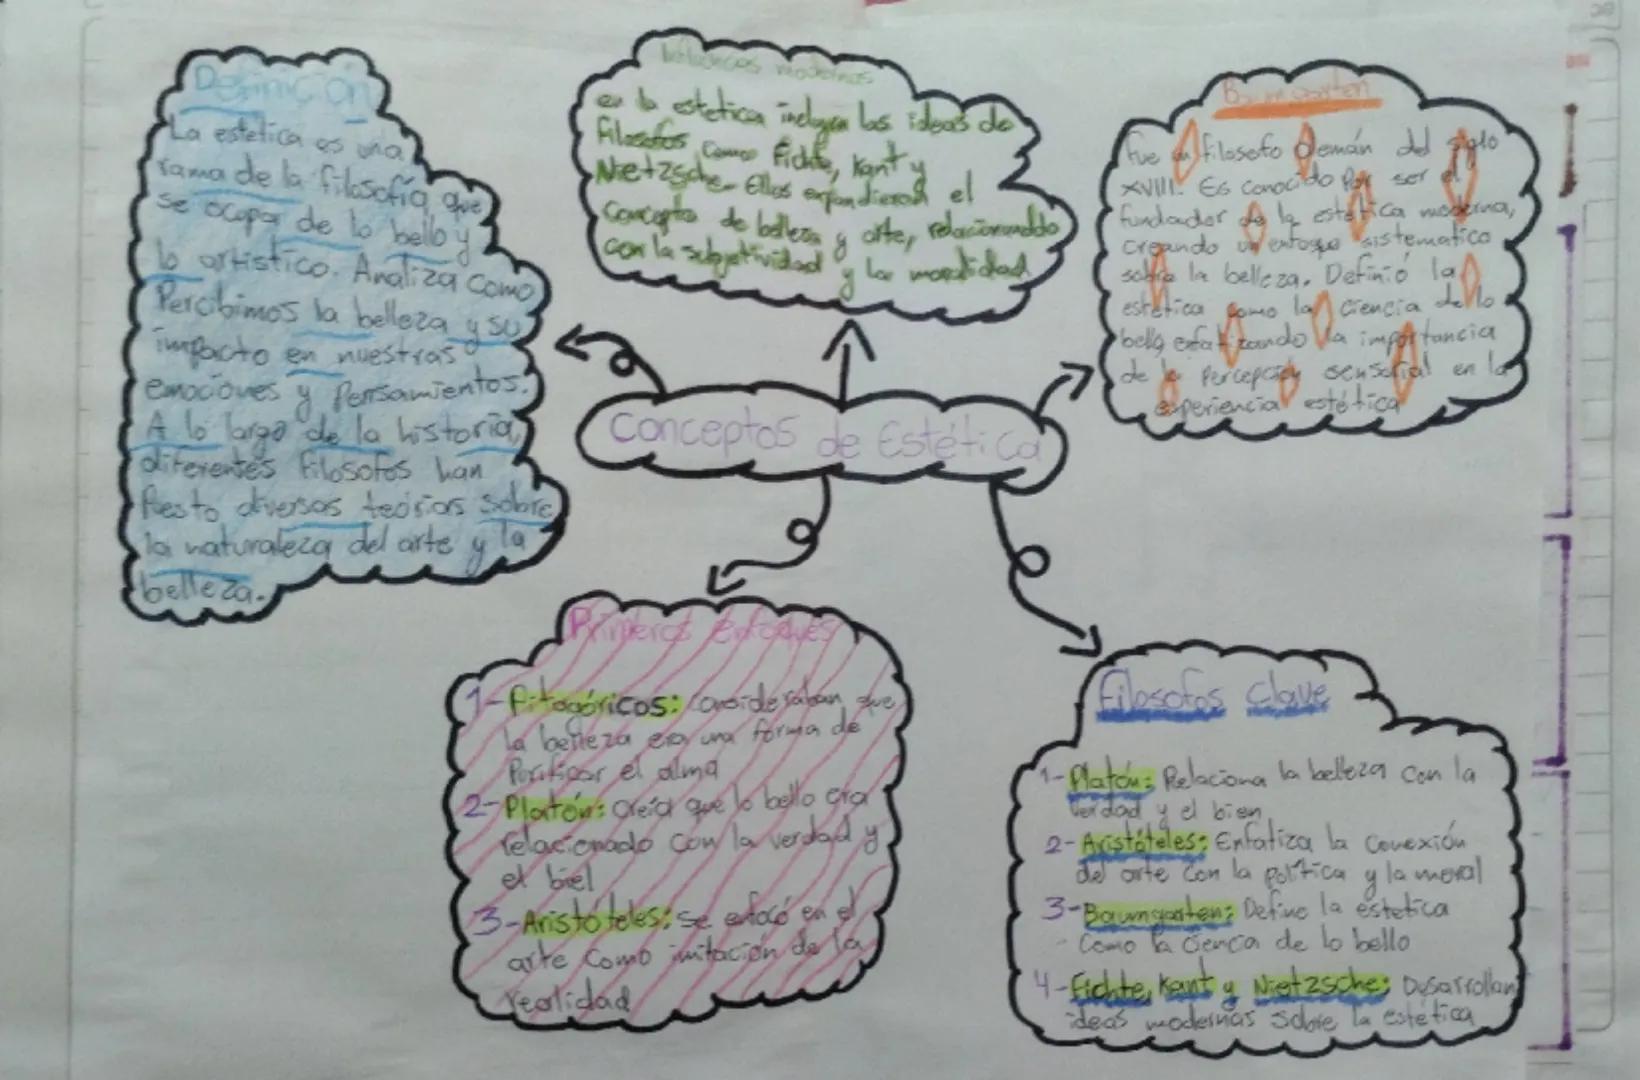 Conceptos de Estética
Definición
La estetica es una
rama de la filosofía que
se ocupa de lo bello y
lo artistico. Analiza como
Percibimos la belleza y su
impacto en nuestras
emociones y pensamientos.
A lo largo de la historia,
diferentes filosofos han
Puesto diversas teorias sobre
la naturaleza del arte y la
belleza.
Influencias modernas
en la estetica incluyen las ideas de
Filosofos como Fichte, Kant y
Nietzsche. Ellos expandieron el
concepto de belleza y arte, relacionanddo
con la subjetividad y la moralidad
Baumgarten
Fue un filosofo alemán del siglo
XVIII. Es conocido por ser el
fundador de la estética moderna,
creando un enfoque sistematico
sobre la belleza. Definió la
estética como la ciencia de lo
bello enfatizando la importancia
de la percepción sensorial en la
experiencia estética
Primeros enfoques
1- Pitagóricos: consideraban que
la belleza era una forma de
Purificar el alma
2- Platón: creía que lo bello era
relacionado con la verdad y
el biel
3- Aristóteles: se enfocó en el
arte como imitación de la
realidad
Filosofos clave
1- Platón: Relaciona la belleza con la
verdad y el bien
2- Aristóteles: Enfatiza la conexión
del arte con la política y la moral
3- Baumgarten: Define la estetica
como la ciencia de lo bello
4- Fichte, Kant y Nietzsche: Desarrollan
ideas modernas sobre la estética